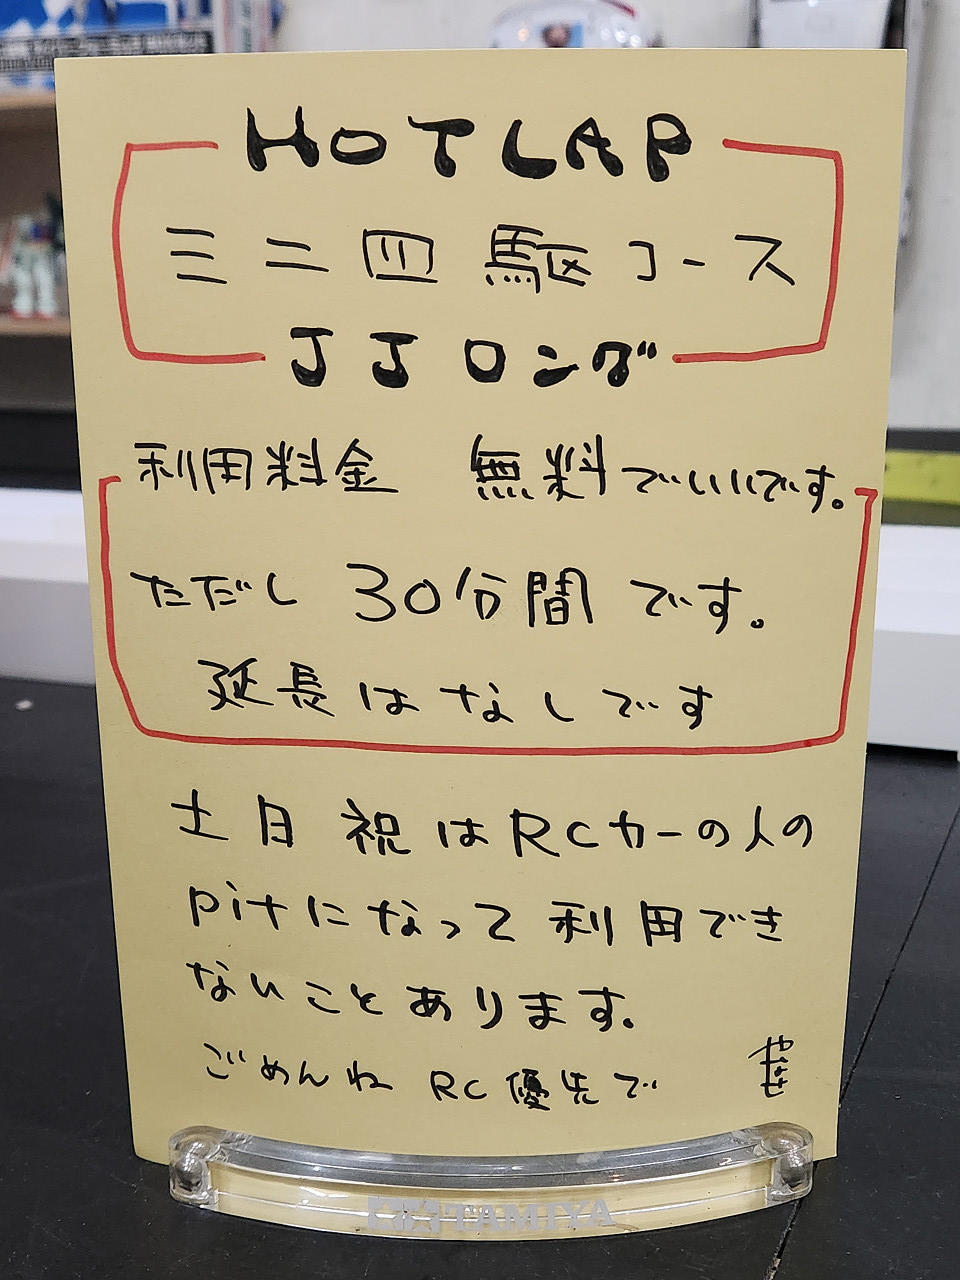 HOTLAP
ミニ四駆コース
JJロング
利用料金 無料でいいです。
ただし 30分間 です。
延長はなしです
土日祝はRCカーの人の
pitになって利用でき
ないことあります。
ごめんね RC優先で
TAMIYA